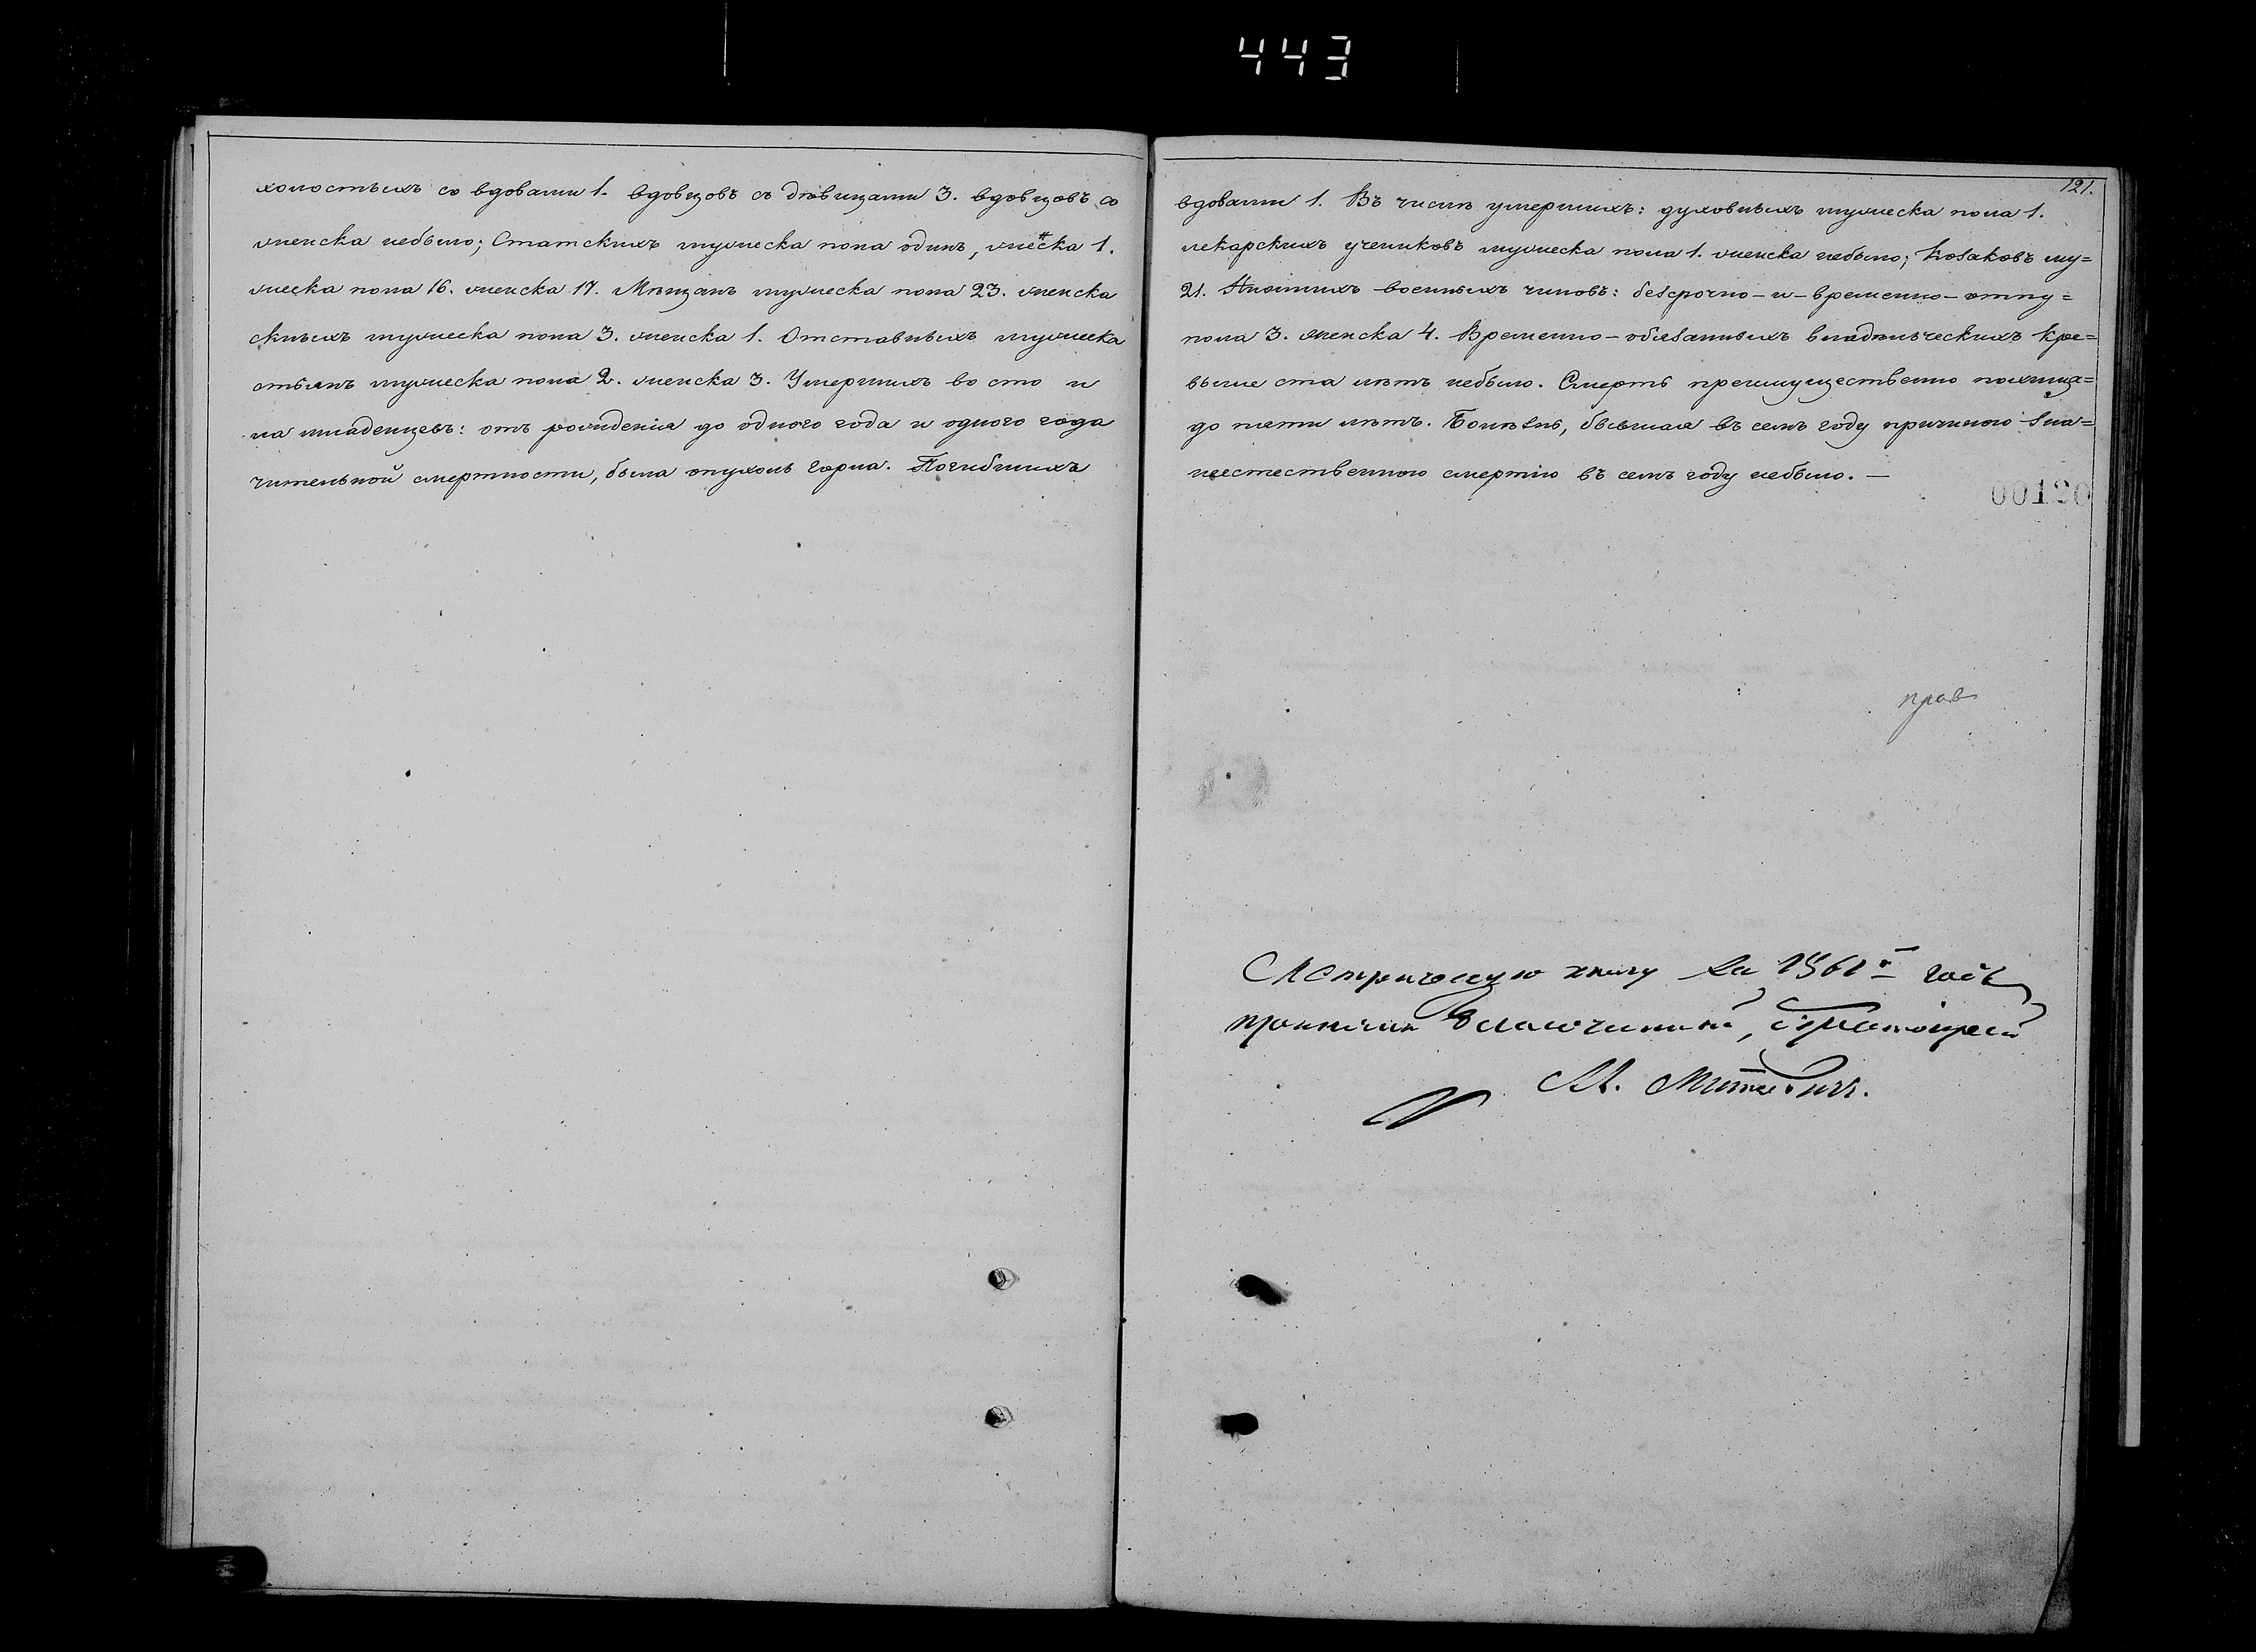 443
121.
холостыхъ со вдовами 1. вдовцовъ съ дѣвицами 3. вдовцовъ со
вдовами 1. Въ числѣ умершихъ: духовныхъ мужеска пола 1.
женска небыло; Статскихъ мужеска пола одинъ, женска 1.
лекарскихъ учениковъ мужеска пола 1. женска небыло; Козаковъ му=
жеска пола 16. женска 17. Мѣщанъ мужеска пола 23. женска
21. Нижнихъ военныхъ чиновъ: безсрочно-и-временно-отпу=
скныхъ мужеска пола 3. женска 1. Отставныхъ мужеска
пола 3. женска 4. Временно-обязанныхъ владѣльческихъ кре=
стьянъ мужеска пола 2. женска 3. Умершихъ во сто и
выше ста лѣтъ небыло. Смерть преимущественно похища=
ла младенцевъ: отъ рожденія до одного года и одного года
до пяти лѣтъ. Болѣзнь, бывшая въ семъ году причиною зна=
чительной смертности, была опухоль горла. Погибшихъ
неестественною смертію въ семъ году небыло. —
00120
прав
Метрическую книгу за 1861й годъ
Благочинный,